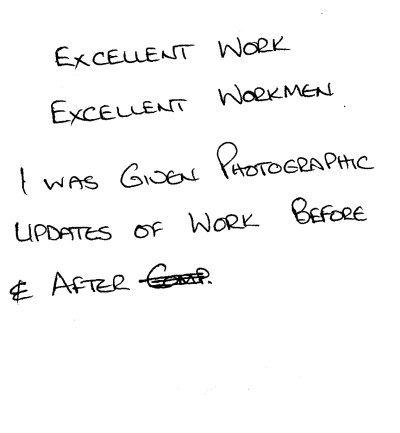 EXCELLENT WORK
EXCELLENT WORKMEN
I WAS GIVEN PHOTOGRAPHIC
UPDATES OF WORK BEFORE
& AFTER